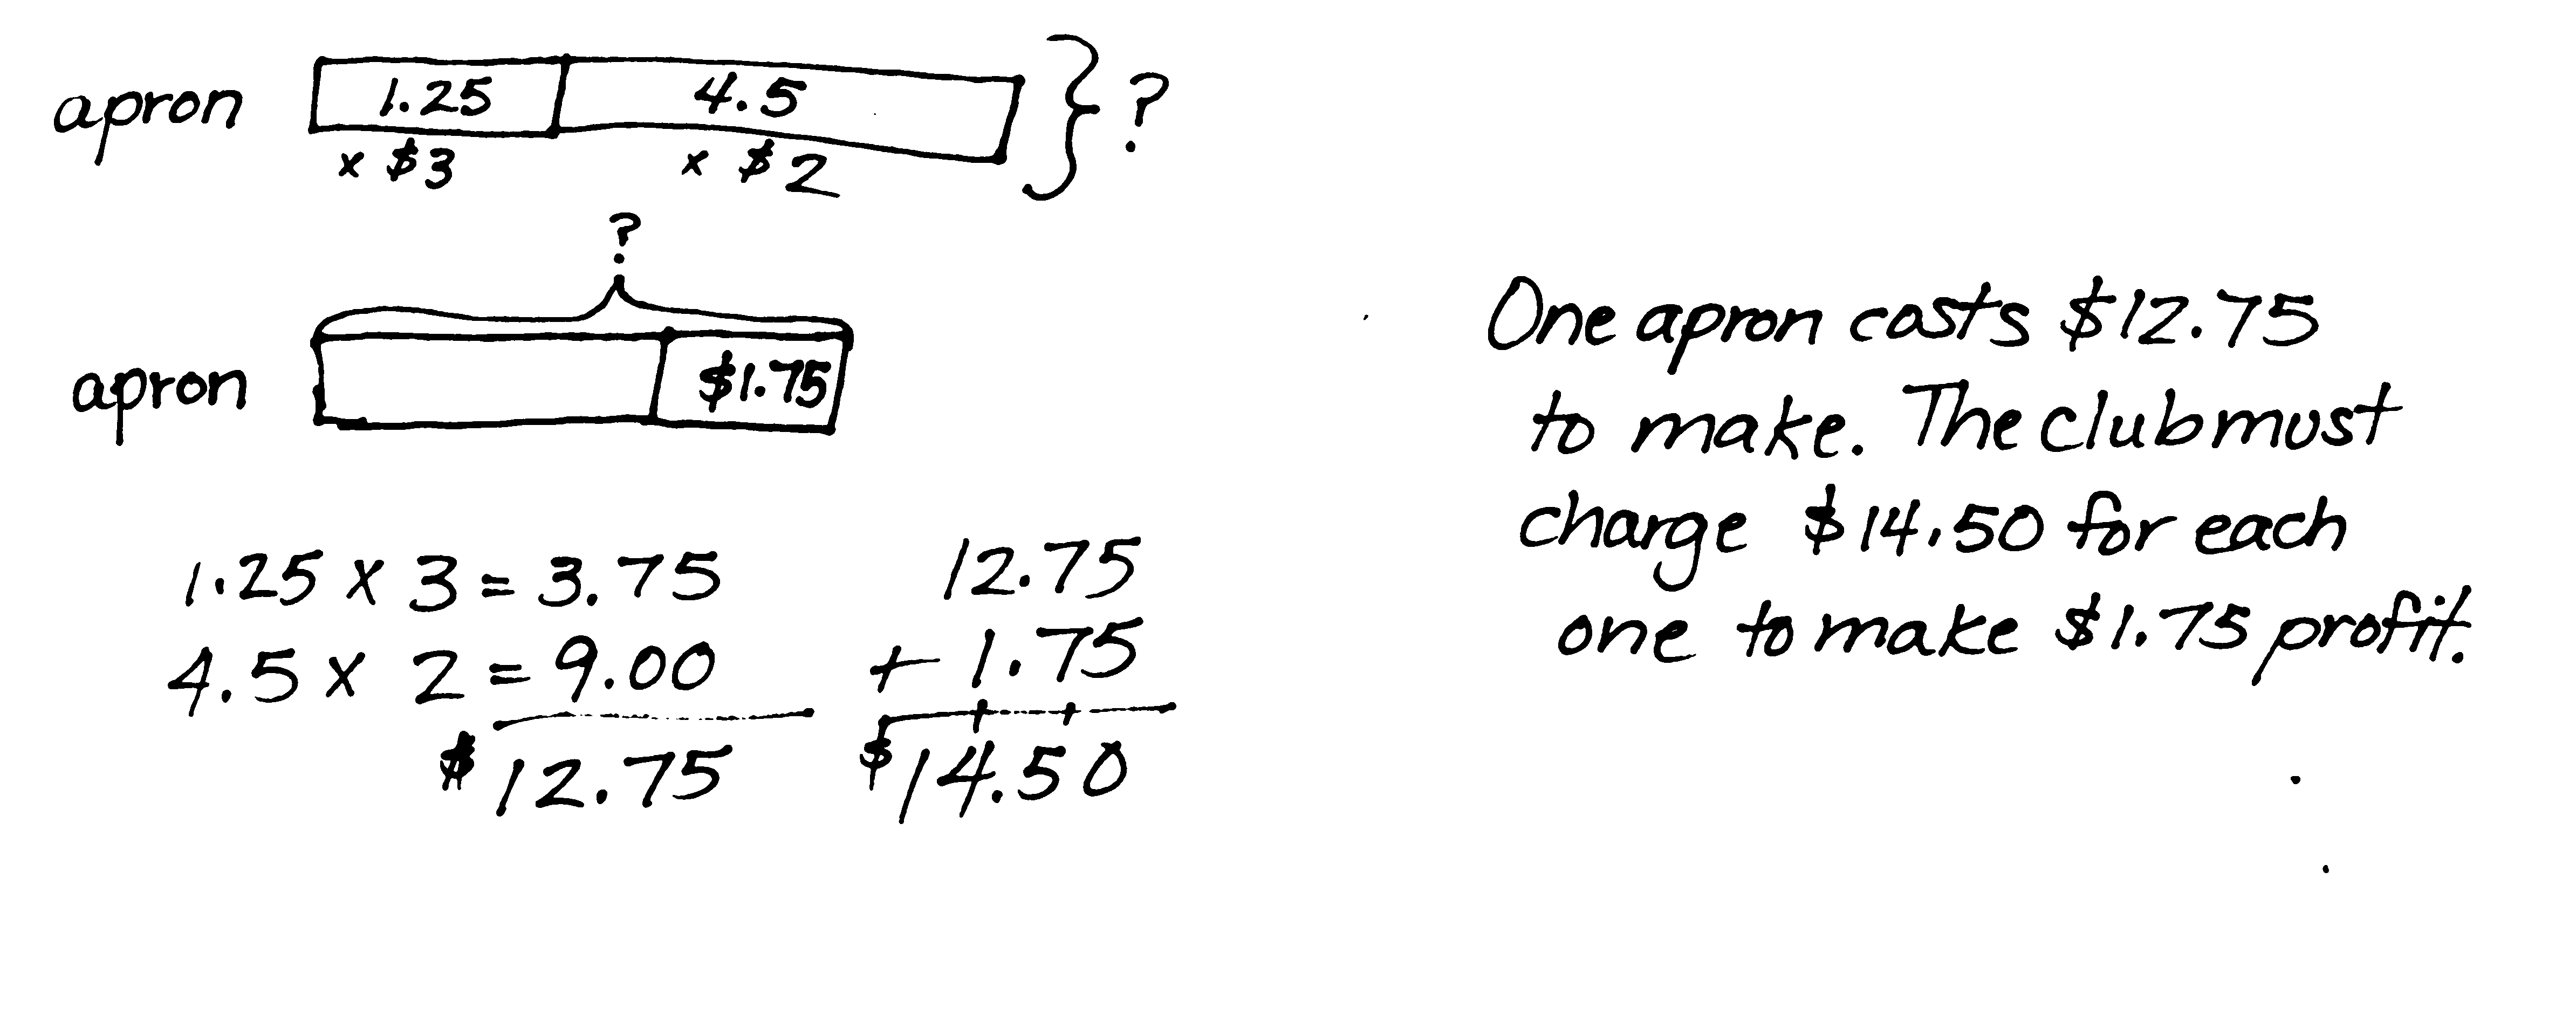 apron 1.25 4.5 ?
x $3 x $2
?
apron $1.75
1.25 x 3 = 3.75
4.5 x 2 = 9.00
$12.75
12.75
+ 1.75
$14.50
One apron costs $12.75
to make. The club must
charge $14.50 for each
one to make $1.75 profit.